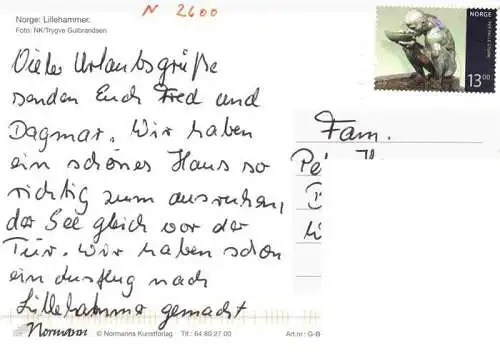 N 2600
Norge: Lillehammer.
Foto: NK/Trygve Gulbrandsen
NORGE
13.00
Vielen Urlaubsgrüße
senden Euch Fred und
Dagmar. Wir haben
ein schönes Haus so
richtig zum ausruhen,
der See gleich vor der
Tür. Wir haben schon
ein Ausflug nach
Lillehammer gemacht
Fam.
Pe
Normann
© Normanns Kunstforlag Tlf.: 64 80 27 00
Art.nr.: G-B